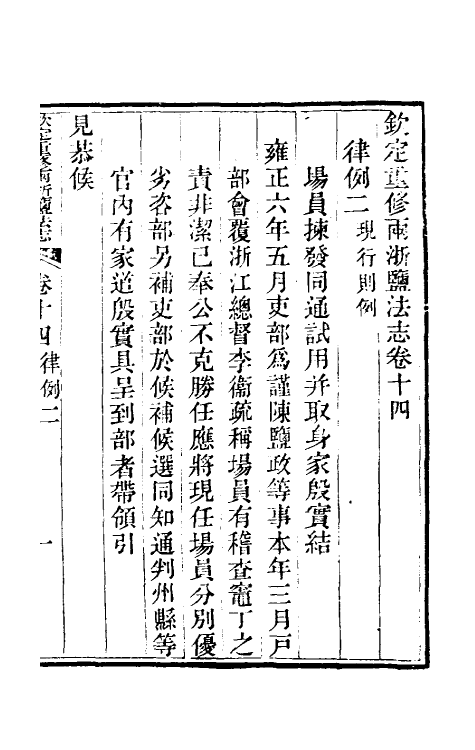 欽定重修兩浙鹽法志卷十四
律例二現行則例
場員揀發同通試用并取身家殷實結
雍正六年五月吏部爲謹陳鹽政等事本年三月戶
部會覆浙江總督李衞疏稱場員有稽查竈丁之
責非潔己奉公不克勝任應將現任場員分別優
劣咨部另補吏部於候補候選同知通判州縣等
官內有家道殷實具呈到部者帶領引
見恭候
欽定重修兩浙鹽法志 卷十四律例二 一